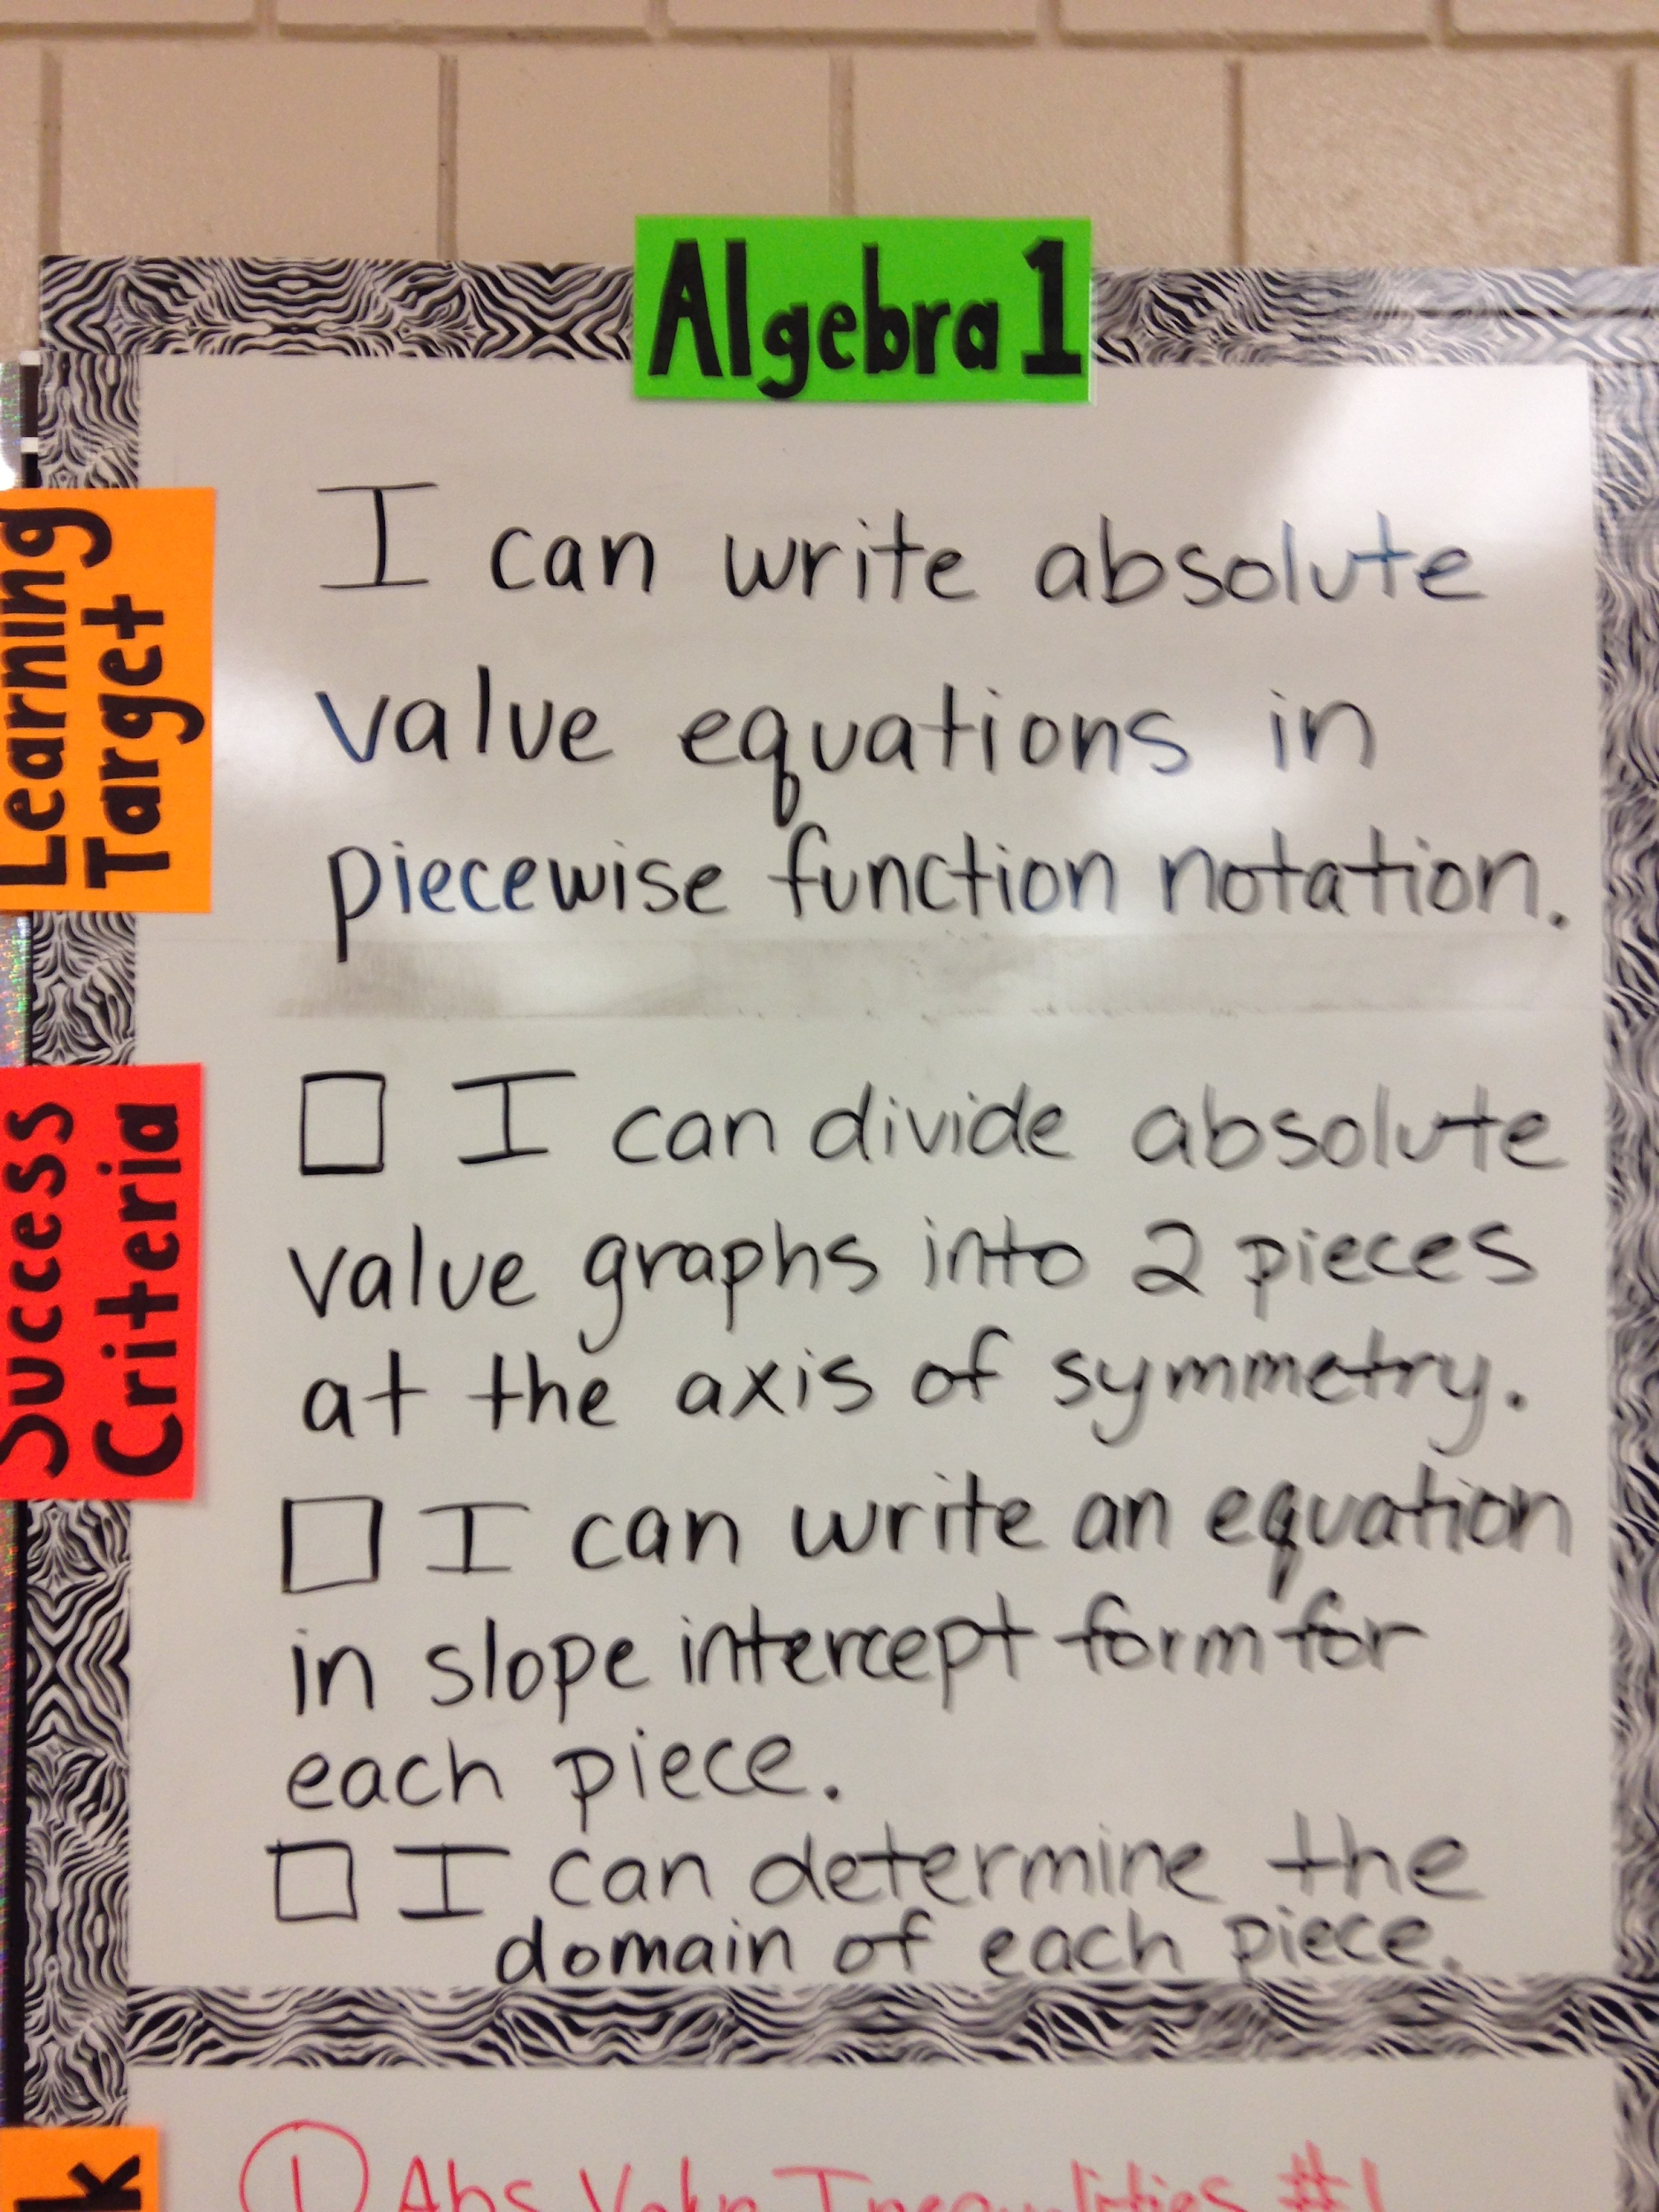 Algebra 1
Learning
Target
I can write absolute
value equations in
piecewise function notation.
Success
Criteria
□ I can divide absolute
value graphs into 2 pieces
at the axis of symmetry.
□ I can write an equation
in slope intercept form for
each piece.
□ I can determine the
domain of each piece.
k
① Abs Value Inequalities #1